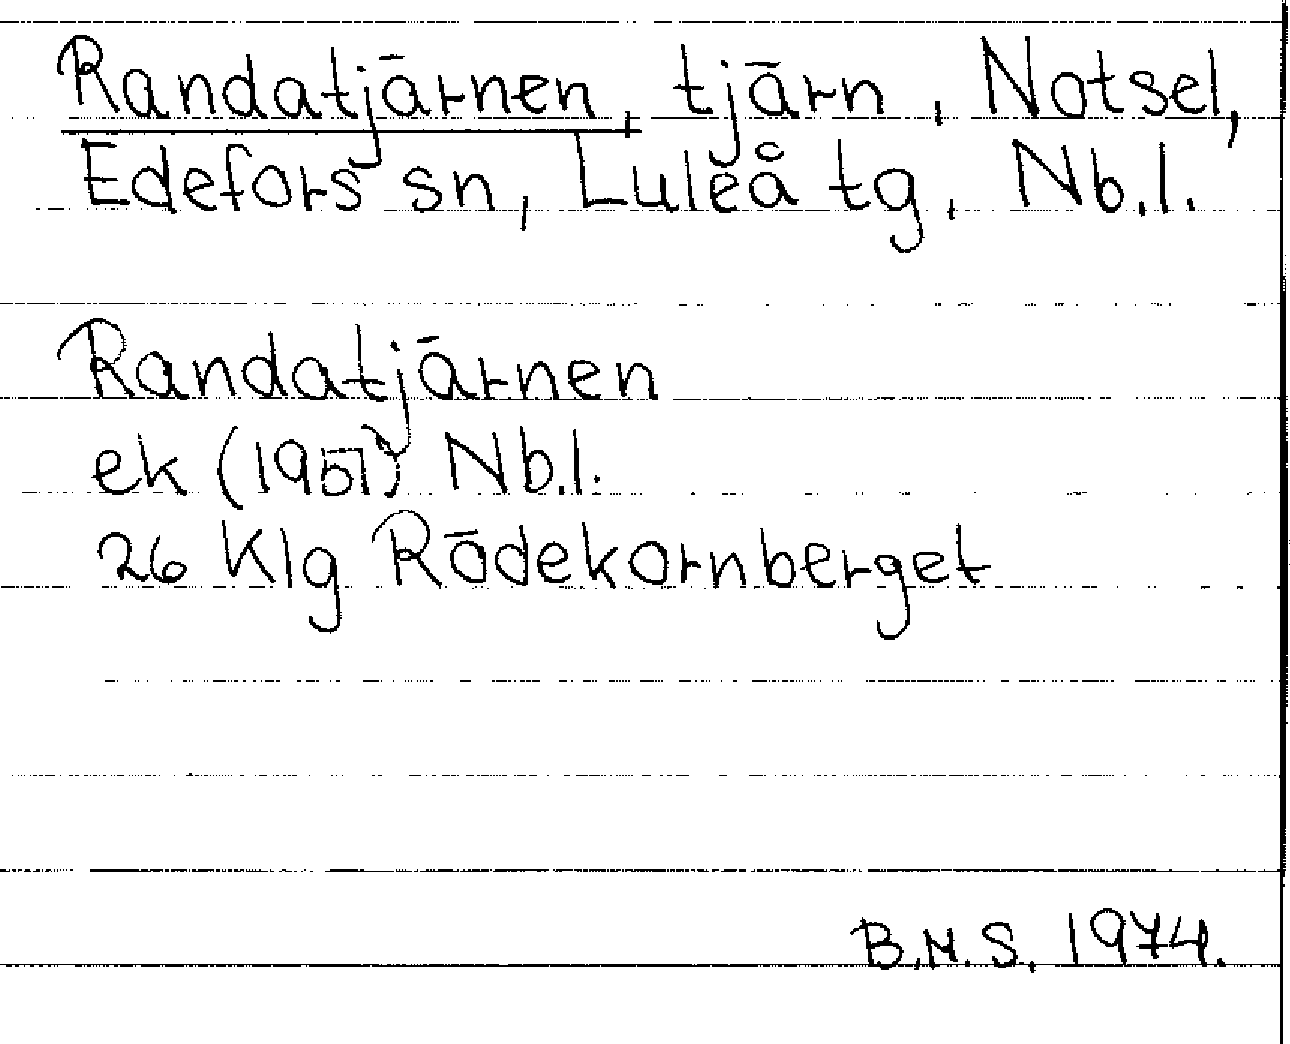 Randatjärnen, tjärn, Notsel,
Edefors sn, Luleå tg, Nb.l.
Randatjärnen
ek (1951) Nb.l.
26 Klg Rödekornberget
B.N.S. 1974.